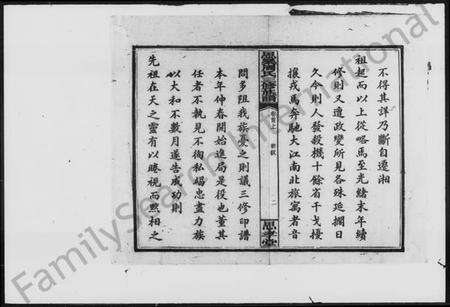 不得其詳乃斷自遷湘
祖起而以上從略焉至光緒末年續
修則又遭政變所見各殊延擱日
久今則人發殺機十餘省干戈擾
攘戎馬奔馳大江南北旅寓者音
問多阻我族憂之則議三修印譜
本年仲春開始進局是役也董其
任者不執見不徇私竭忠盡力族
以大和不數月遂告成功則
先祖在天之靈有以賜視而默相之
氏
修
譜
卷首
新敘
二
思孝堂
FamilySearch International